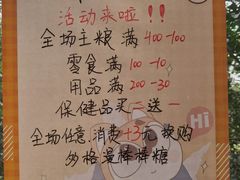 活动来啦!!
全场主粮 满400-100
零食 满 100-10
用品 满 200-30
保健品买二送一
全场任意消费+3元换购
Hi